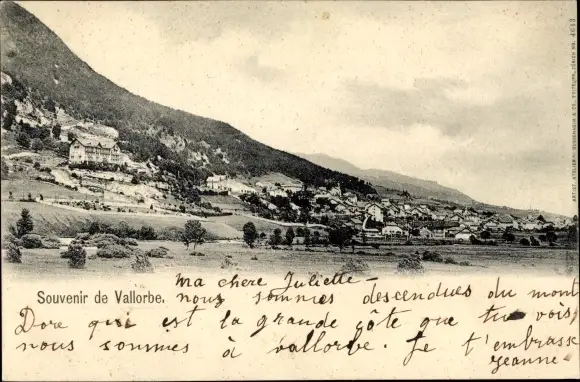 Souvenir de Vallorbe.
Ma chere Juliette
nous sommes descendues du mont
Dore qui est la grande côte que tu vois,
nous sommes à vallorbe. Je t'embrasse
Jeanne